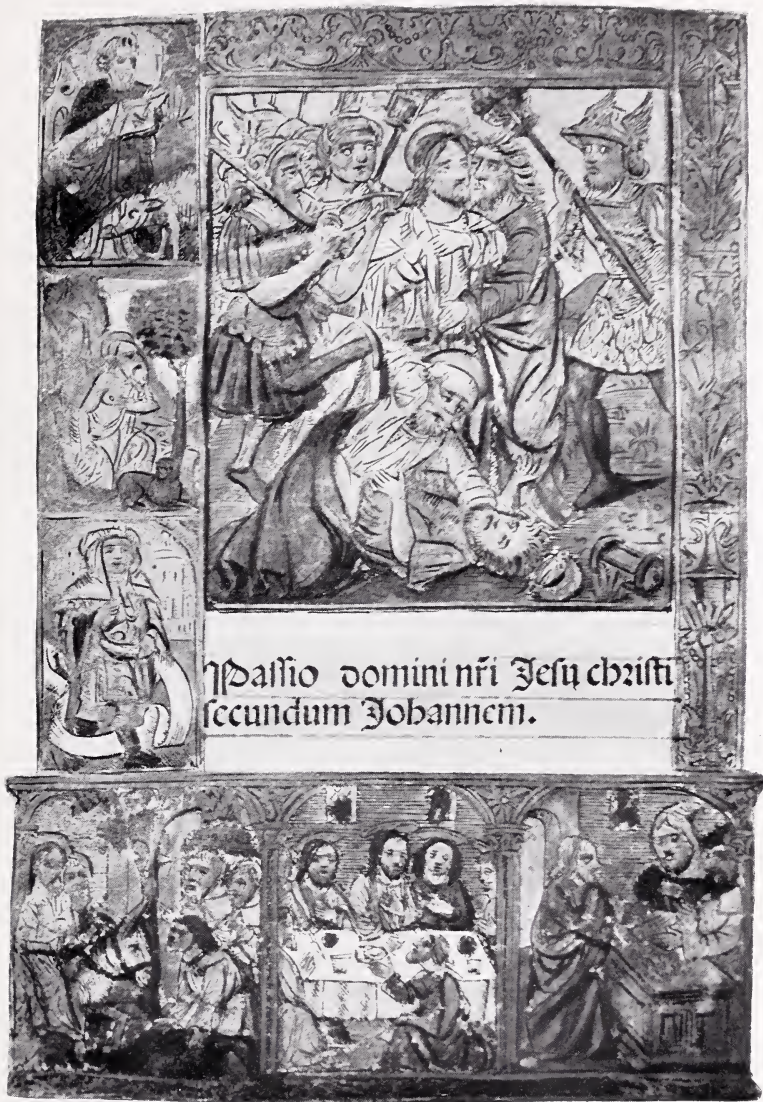 Passio domini nr̃i Jesu christi
secundum Johannem.